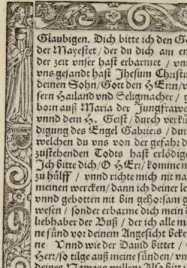 Glaubigen. Dich bitte ich den G
der Mayestet, der du dich am en
der zeit vnser hast erbarmet / vnn
vns gesandt hast Jhesum Christ
deinen Sohn / Gott den HErrn / v
sern Hailand vnd Seligmacher /
born auß Maria der Jungfrawe
vnnd dem H. Geist / durch verkü
digung des Engel Gabriels / du
welchen du vns von der gefahr
zustehenden Todts hast erlödige
Ich bitte dich / O HErr / kommen
zu hülff / vnnd richte mich nit na
meinen wercken / dann ich deiner le
vnnd gebotten nit bin gehorsam g
wesen / sonder erbarme dich mein
liebhaber der Buß / der ich alle m
ne sünd vor deinem Angesicht beke
ne Vnnd wie der David bittet /
Herr / so tilge auß meine sünden /
deines Namens